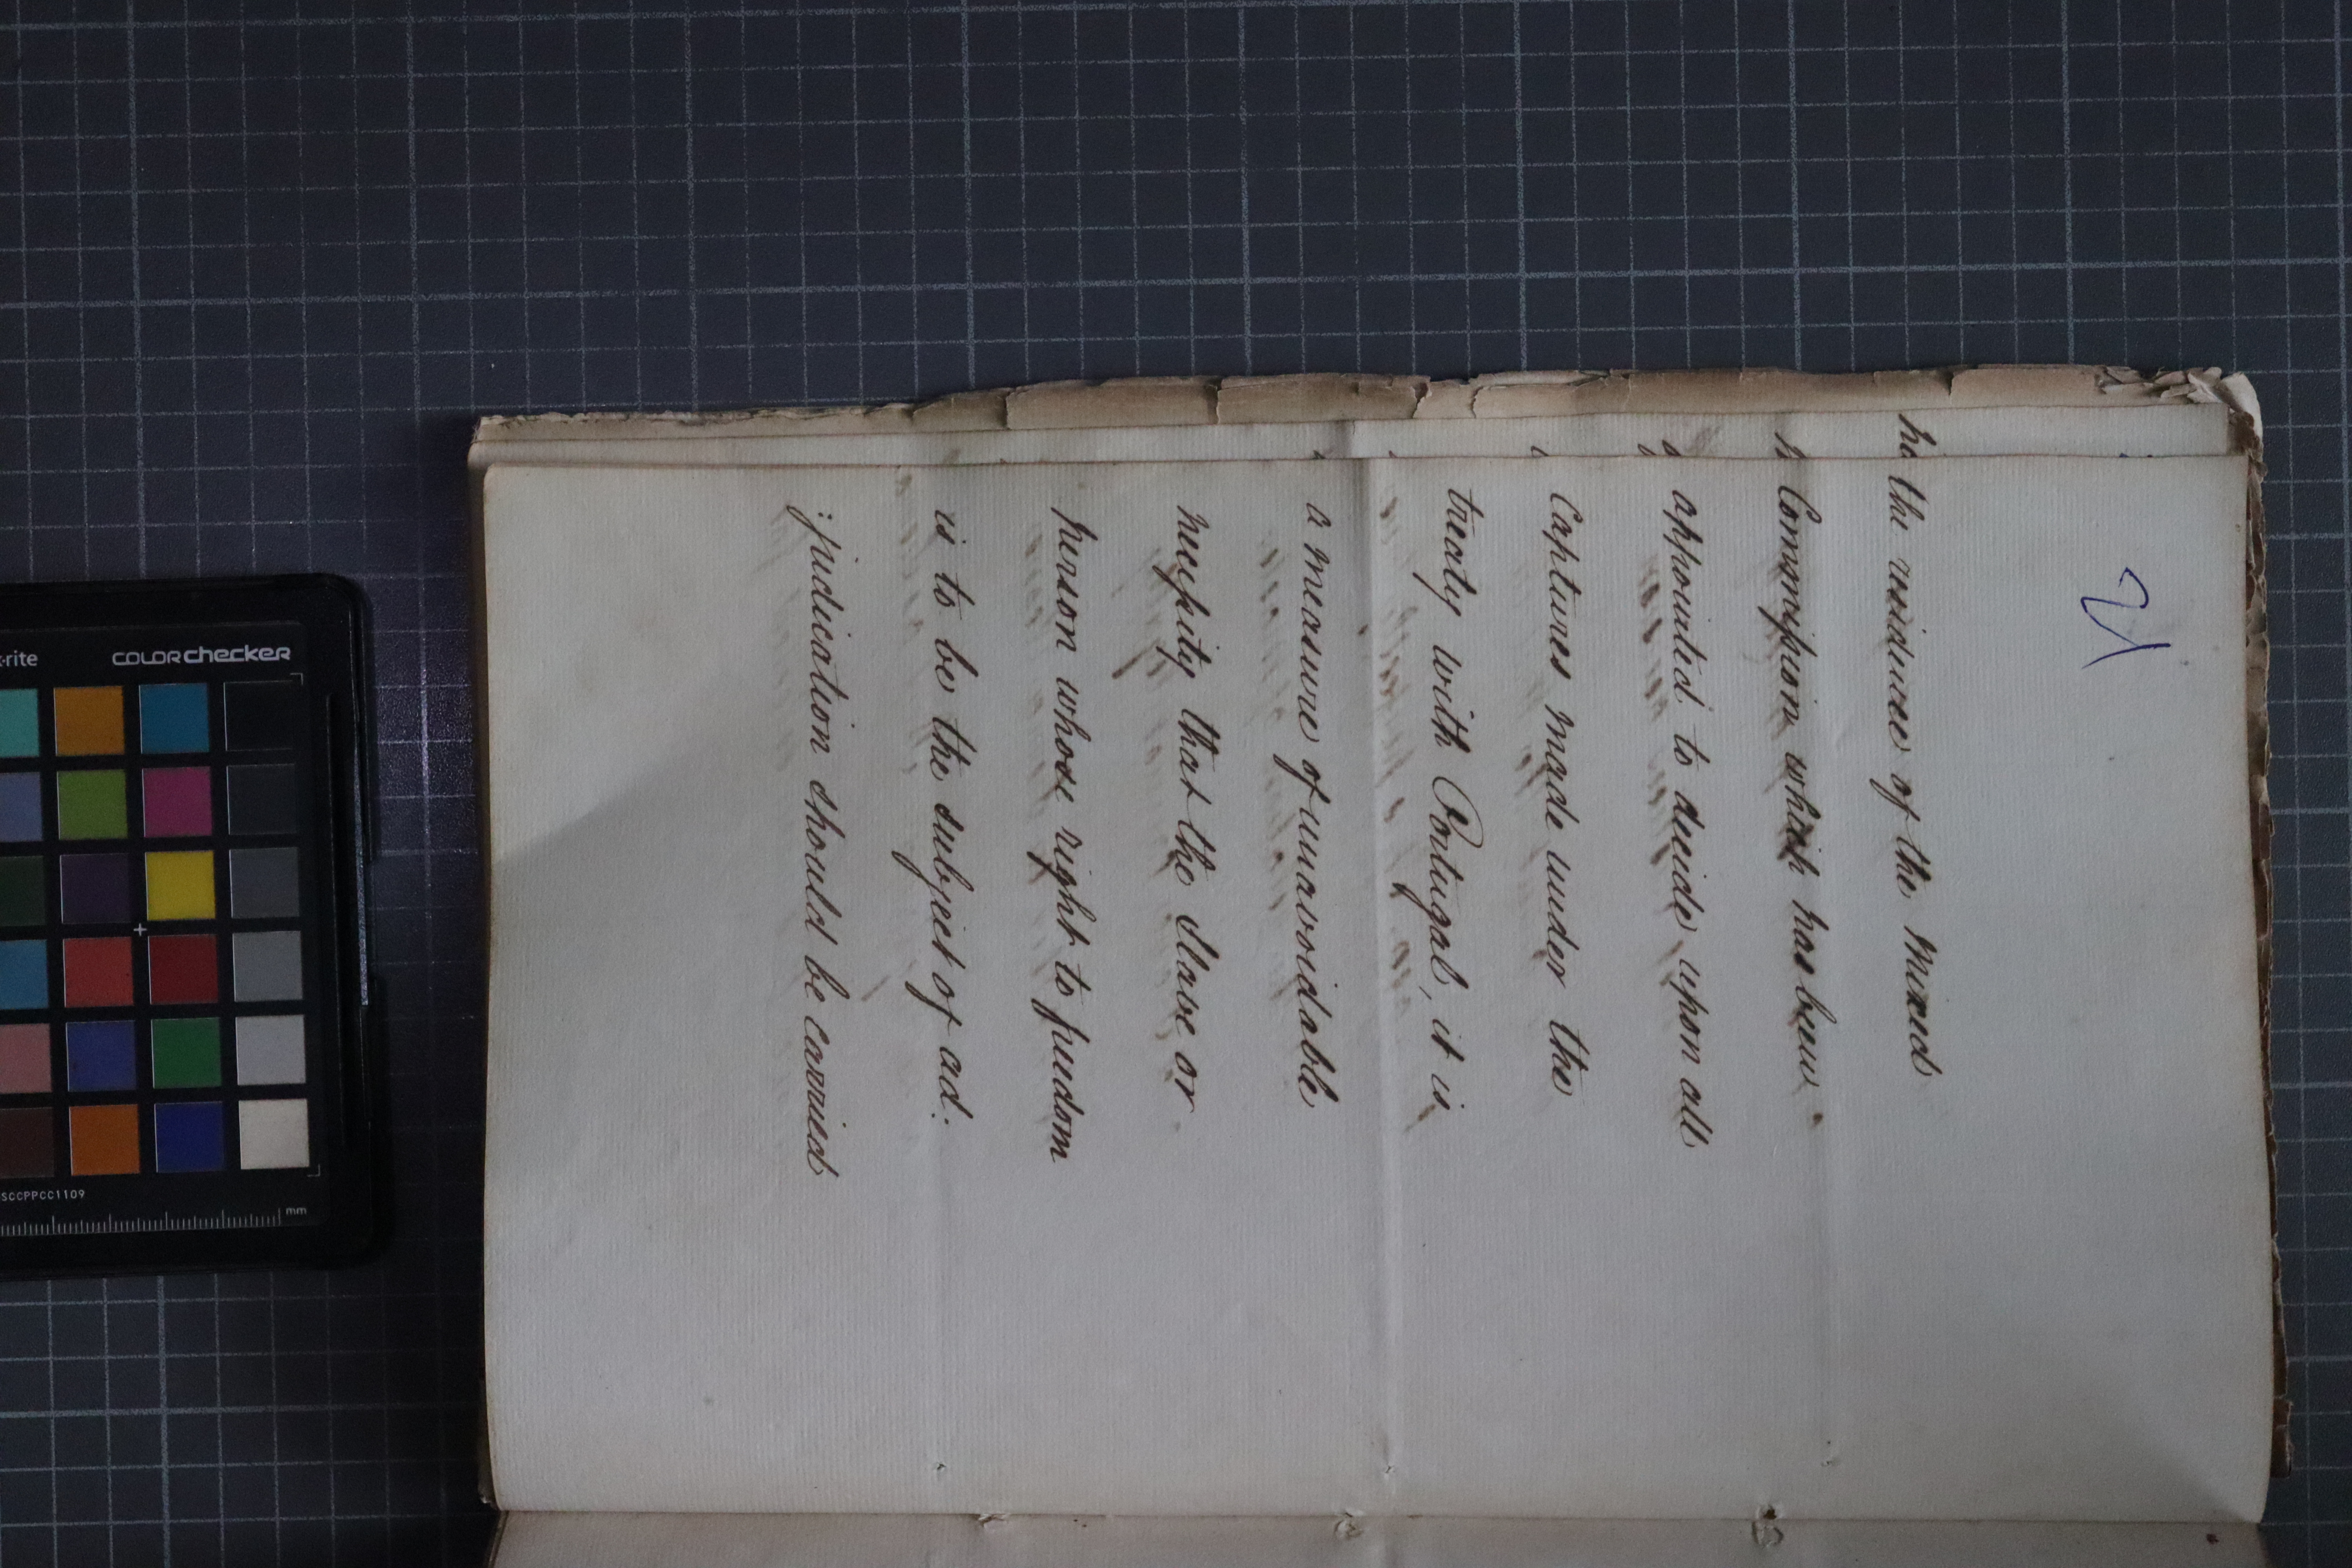 the residence of the mixed
Commission which has been
appointed to decide upon all
Captures made under the
treaty with Portugal, it is
a measure of unavoidable
necessity that the Slave or
person whose right to freedom
is to be the subject of ad:
:judication should be carried
x-rite
colorchecker
SCCPPCC1109
mm